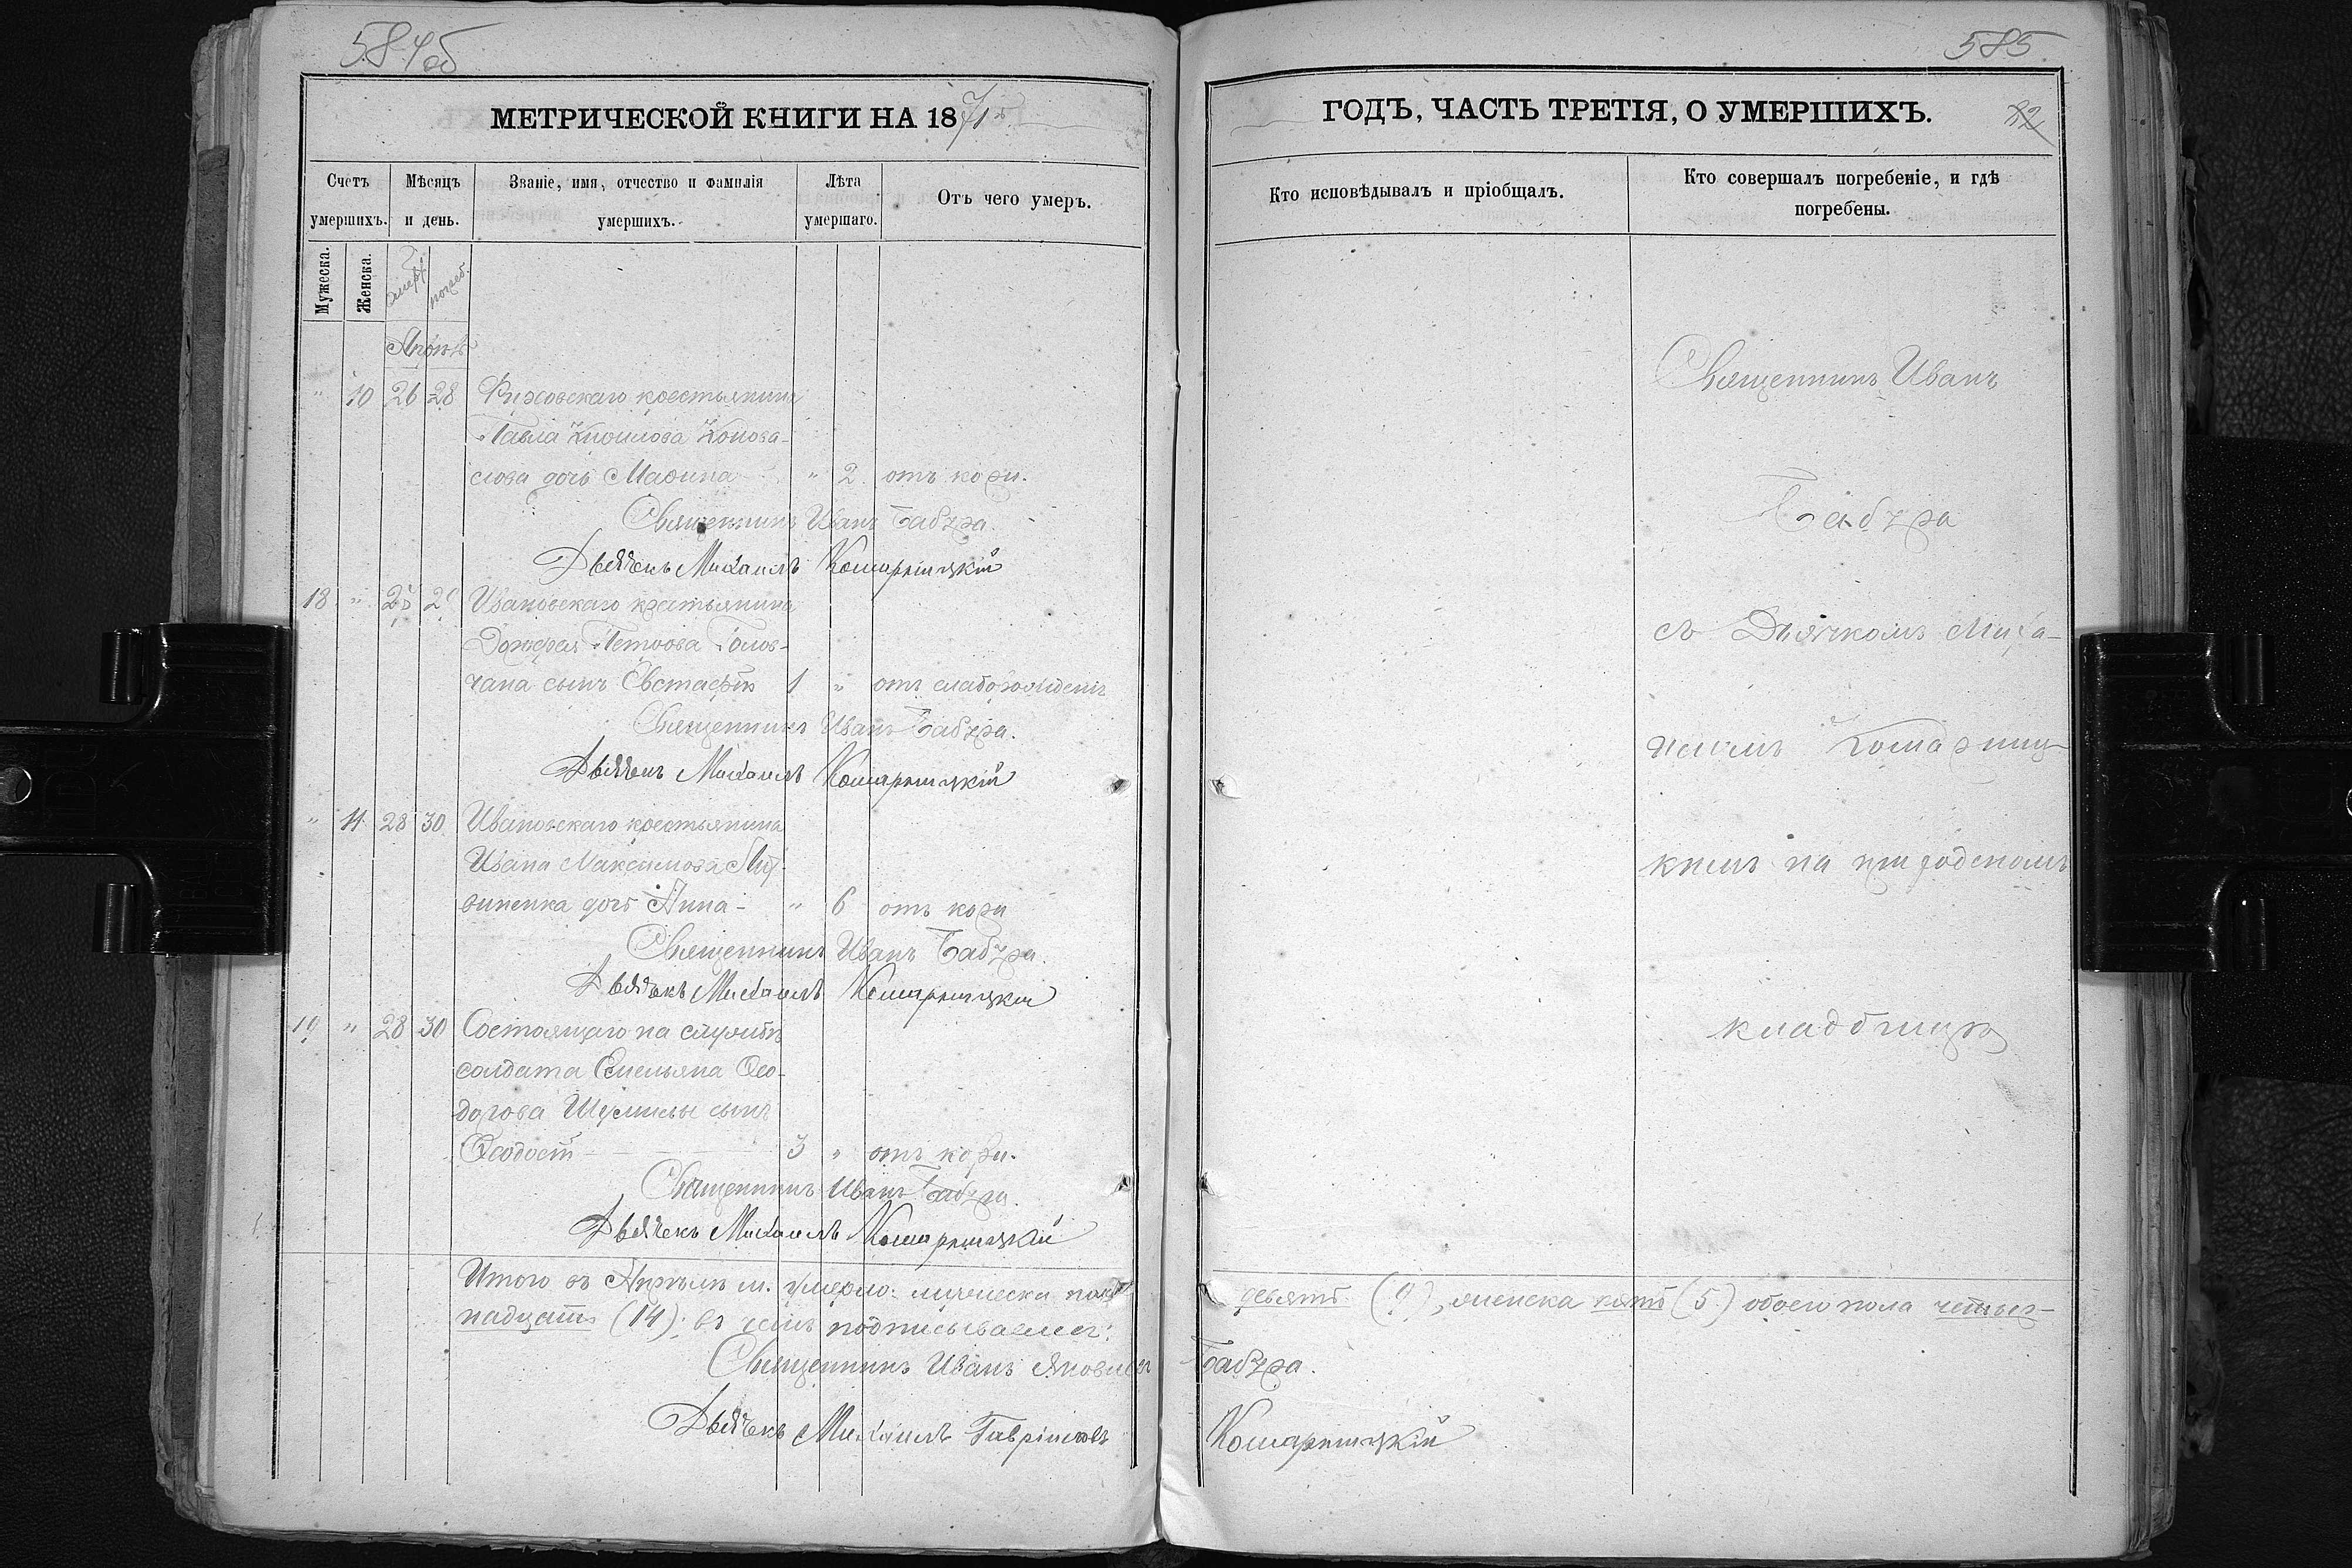 584об
МЕТРИЧЕСКОЙ КНИГИ НА 1871й
Счетъ умершихъ.
Мѣсяцъ и день.
Званіе, имя, отчество и фамилія умершихъ.
Лѣта умершаго.
Отъ чего умеръ.
Мужеска.
Женска.
умерт.
погреб.
" 10 26 28 крестьянина
Павла Конова-
лова дочь Марина " 2 отъ кори.
Священникъ Иванъ Бабура.
Дьячекъ Михаилъ Комарницкій
18 " 2 Ивановскаго крестьянина
Петрова Голов-
чана сынъ Евстафій 1 " отъ слаборожденія
Священникъ Иванъ Бабура.
Дьячекъ Михаилъ Комарницкій
" 11 28 30 Ивановскаго крестьянина
Ивана Максимова
виненка дочь Анна - " 6 отъ кори
Священникъ Иванъ Бабура.
Дьячекъ Михаилъ Комарницкій
19 " 28 30 Состоящаго на службѣ
солдата Емельяна Ѳео-
дорова сынъ
Ѳеодосій 3 " отъ кори.
Священникъ Иванъ Бабура.
Дьячекъ Михаилъ Комарницкій
Итого въ Апрѣлѣ м. умерло: мужеска пола
надцать (14); въ семъ подписываемся:
Священникъ Иванъ Яковлевъ
Дьячекъ Михаилъ Гавріиловъ
585
ГОДЪ, ЧАСТЬ ТРЕТІЯ, О УМЕРШИХЪ.
82
Кто исповѣдывалъ и пріобщалъ.
Кто совершалъ погребеніе, и гдѣ погребены.
Священникъ Иванъ
Бабура
съ Дьячкомъ Миха-
иломъ Комарниц-
кимъ на приходскомъ
кладбищѣ
девять (9), женска пять (5) обоего пола четыр-
Бабура.
Комарницкій